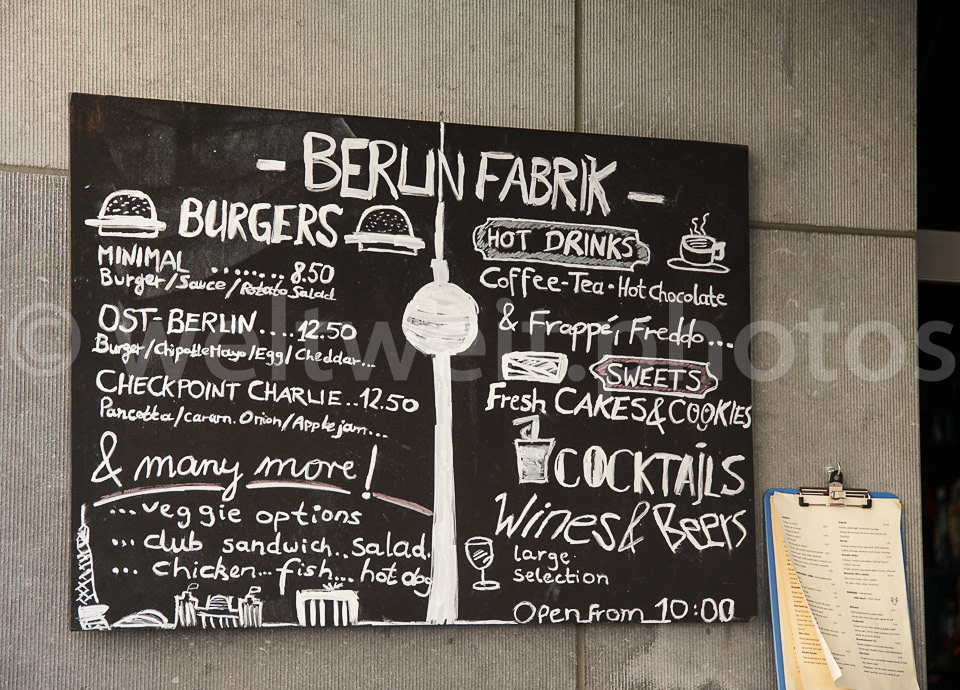 - BERLIN FABRIK -
BURGERS
MINIMAL ........ 8.50
Burger/Sauce/Potato Salad
OST-BERLIN .... 12.50
Burger/ChipotleMayo/Egg/Cheddar...
CHECKPOINT CHARLIE .. 12.50
Pancetta/caram. Onion/Apple jam...
& many more!
...veggie options
... club sandwich..salad.
... chicken...fish....hot dog
HOT DRINKS
Coffee-Tea·Hot Chocolate
& Frappé Freddo...
SWEETS
Fresh CAKES & COOKIES
COCKTAILS
Wines & Beers
large
selection
Open from 10:00
© weltweit.photos